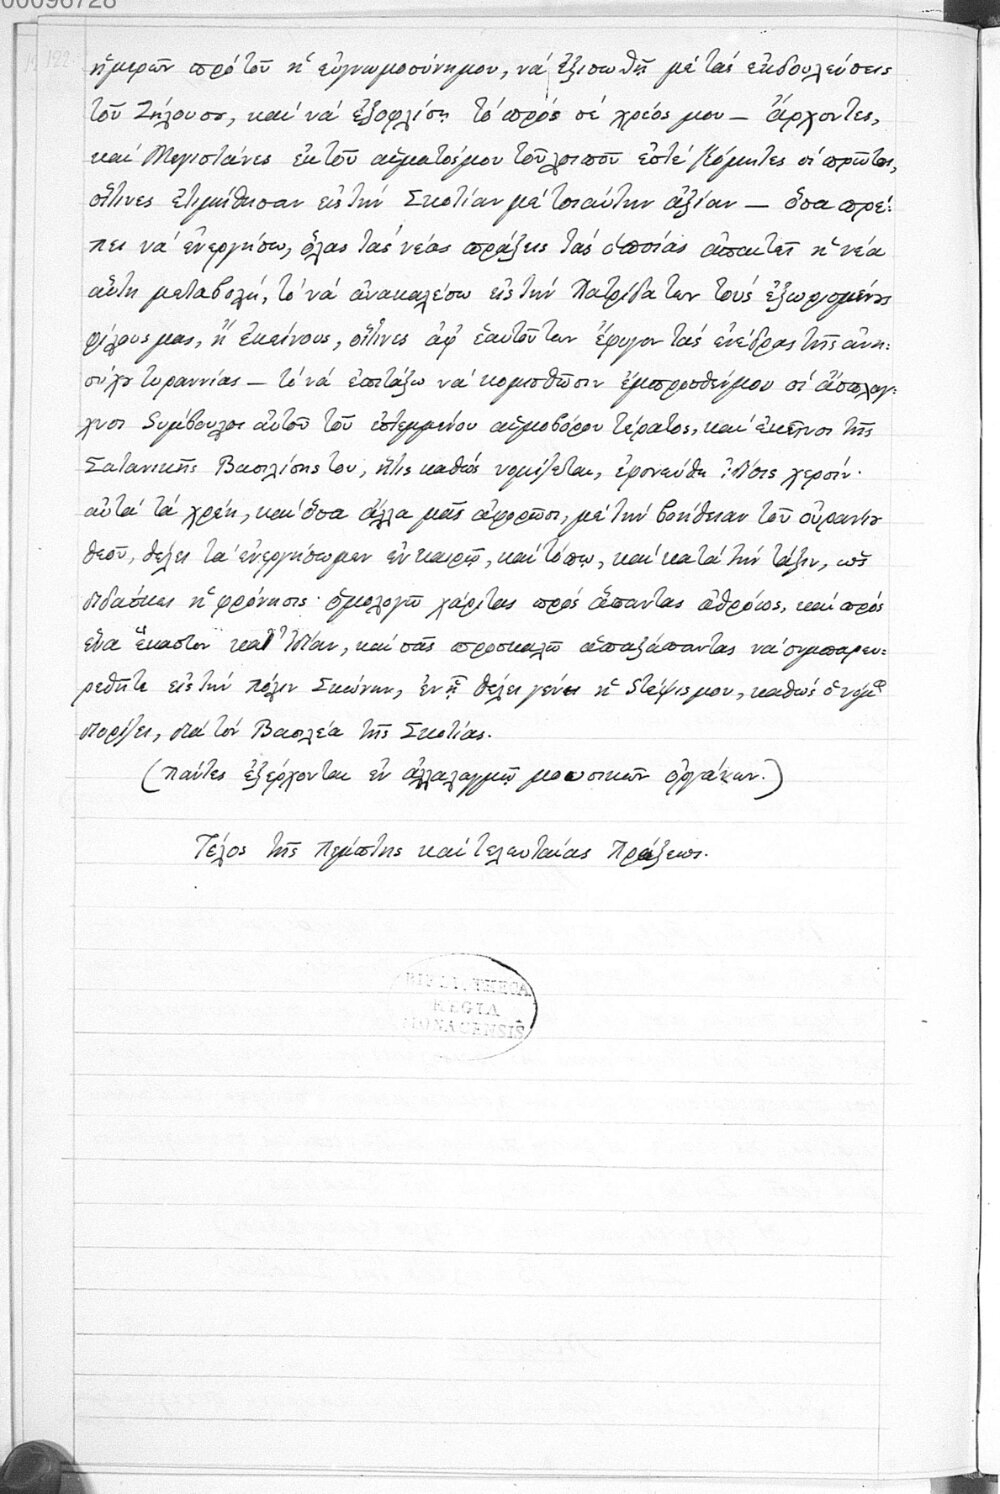 00096728
122.
ἡμερῶν πρό τοῦ ἡ εὐγνωμοσύνημου, νά ἐξισωθῇ μέ τάς ἐκδουλεύσεις
τοῦ ζήλουσυ, καί νά ἐξοφλίσῃ τό πρός σέ χρέος μου — ἄρχοντες,
καί Μεγιστάνες ἐκ τοῦ αἵματόςμου τοῦ λοιποῦ ἐστέ Κόμητες οἱ πρῶτοι,
οἵτινες ἐτιμήθησαν εἰς τήν Σκοτίαν μέ τοιαύτην ἀξίαν — ὅσα πρέ:
πει νά ἐνεργήσω, ὅλας τάς νέας πράξεις τάς ὁποίας ἀπαιτεῖ ἡ νέα
αὕτη μεταβολή, τό νά ἀνακαλέσω εἰς τήν Πατρίδα των τούς ἐξωρισμένους
φίλους μας, ἤ ἐκείνους, οἵτινες ἀφ' ἑαυτοῦ των ἔφυγον τάς ἐνέδρας τῆς ἀνη:
σύχου τυραννίας — τό νά ἐπιτάξω νά κομισθῶσιν ἔμπροσθένμου οἱ ἄσπλαγ:
χνοι Σύμβουλοι αὐτοῦ τοῦ αἱμοβόρου τέρατος, καί ἐκεῖνοι τῆς
Σατανικῆς Βασιλίσης του, ἥτις καθώς νομίζεται, ἐφονεύθη ἰδίαις χερσίν·
αὐτά τά χρέη, καί ὅσα ἄλλα μᾶς ἀφορῶσι, μέ τήν βοήθειαν τοῦ οὐρανίου
θεοῦ, θέλει τά ἐνεργήσωμεν ἐν καιρῷ, καί τόπῳ, καί κατά τήν τάξιν, ὡς
διδάσκει ἡ φρόνησις· ὁμολογῶ χάριτας πρός ἅπαντας ἀθρόως, καί πρός
ἕνα ἕκαστον κατ' ἰδίαν, καί σᾶς προσκαλῶ ἁπαξάπαντας νά συμπαρευ:
ρεθῆτε εἰς τήν πόλιν Σκώνην, ἐν ᾗ θέλει γένει ἡ Στέψις μου, καθώς ὁ νόμος
διορίζει, διά τόν Βασιλέα τῆς Σκοτίας.
(Πάντες ἐξέρχονται ἐν ἀλλαλαγμῷ μουσικῶν ὀργάνων.)
Τέλος τῆς Πέμπτης καί τελευταίας Πράξεως.
BIBLIOTHECA
REGIA
MONACENSIS